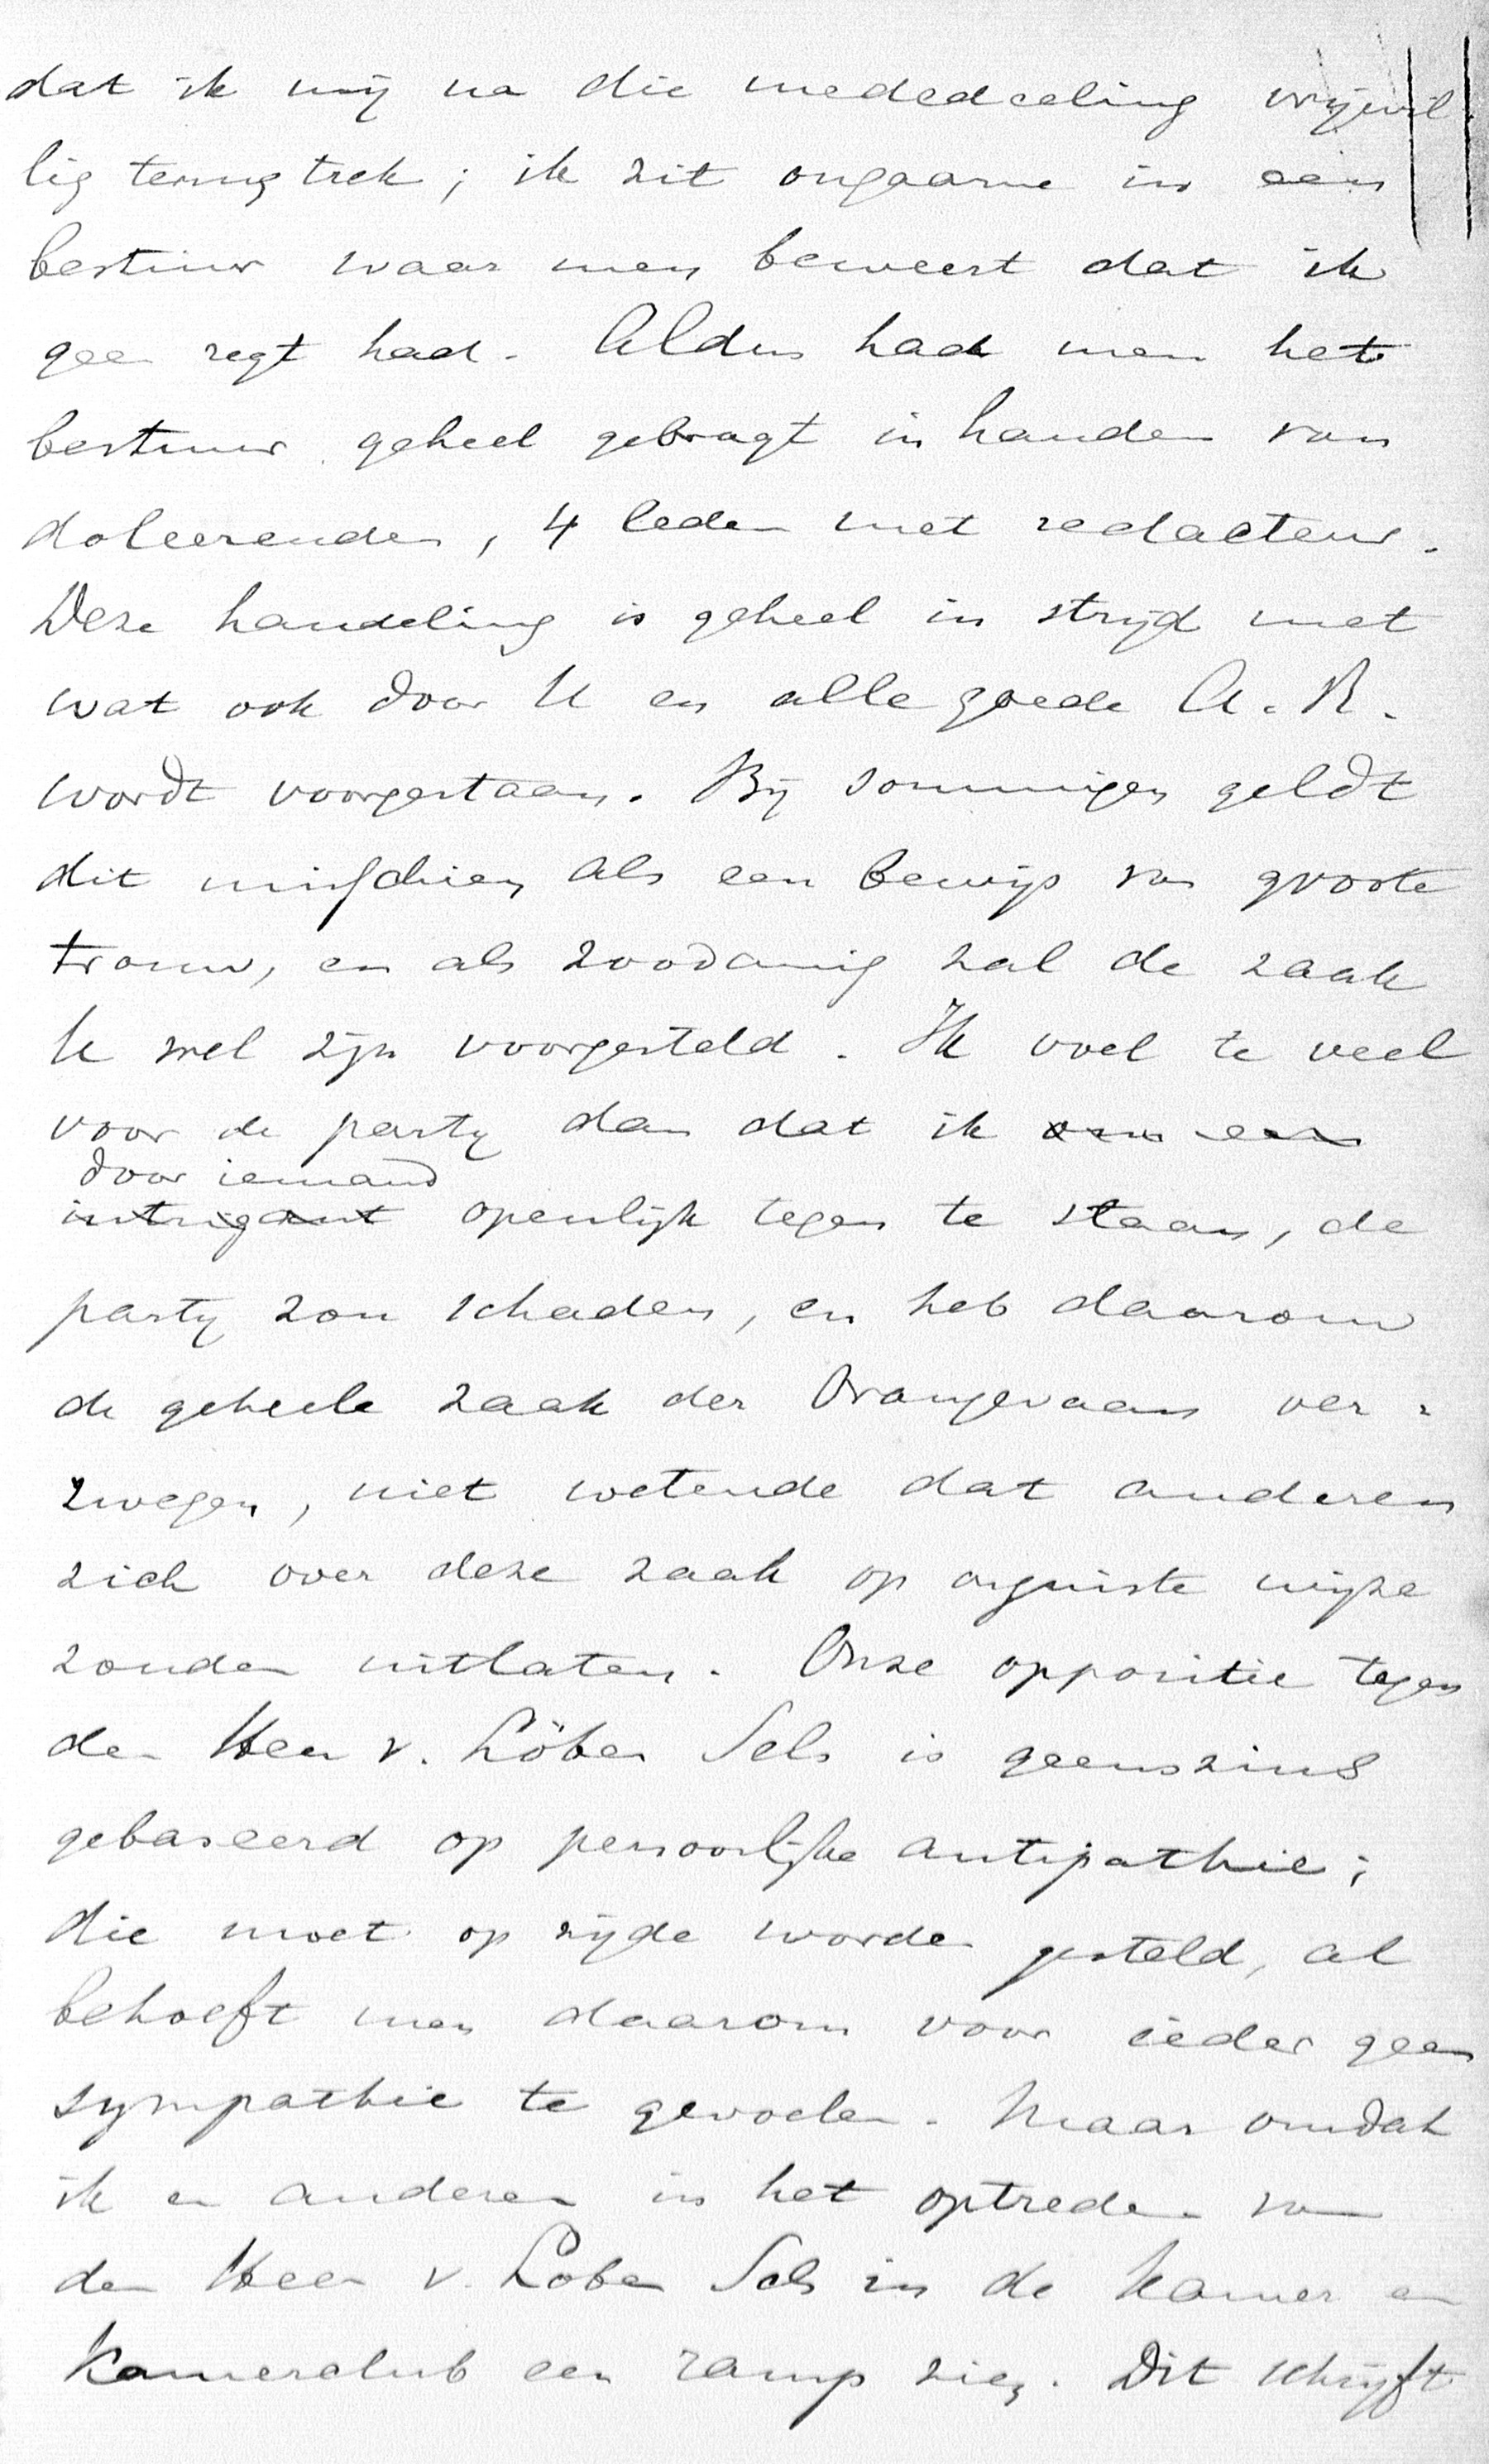 dat ik mij na die mededeeling vrijwil
lig terugtrek; ik zit ongaarne in een
bestuur waar men beweert dat ik
geen regt had. Aldus had men het
bestuur geheel gebragt in handen van
doleerenden, 4 leden met redacteur.
Deze handeling is geheel in strijd met
wat ook door U en alle goede A.R.
wordt voorgestaan. Bij sommigen geldt
dit misschien als een bewijs van groote
trouw, en als zoodanig zal de zaak
U wel zijn voorgesteld. Ik voel te veel
voor de party dan dat ik om een
door iemand
intrigant openlijk tegen te staan, de
party zou schaden, en heb daarom
de geheele zaak der Oranjevaan ver=
zwegen, niet wetende dat anderen
zich over deze zaak op onjuiste wijze
zouden uitlaten. Onze oppositie tegen
den Heer v. Löben Sels is geenszins
gebaseerd op persoonlijke antipathie;
die moet op zijde worden gesteld, al
behoeft men daarom voor ieder geen
sympathie te gevoelen. Maar omdat
ik en anderen in het optreden van
den Heer v. Loben Sels in de Kamer en
Kamerclub een ramp zien. Dit schrijft